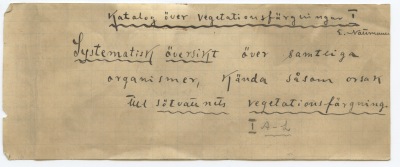 Katalog över vegetationsfärgningar I
E. Naumann
Systematisk översikt över samtliga
organismer, kända såsom orsak
till sötvattnets vegetationsfärgning.
I A-L